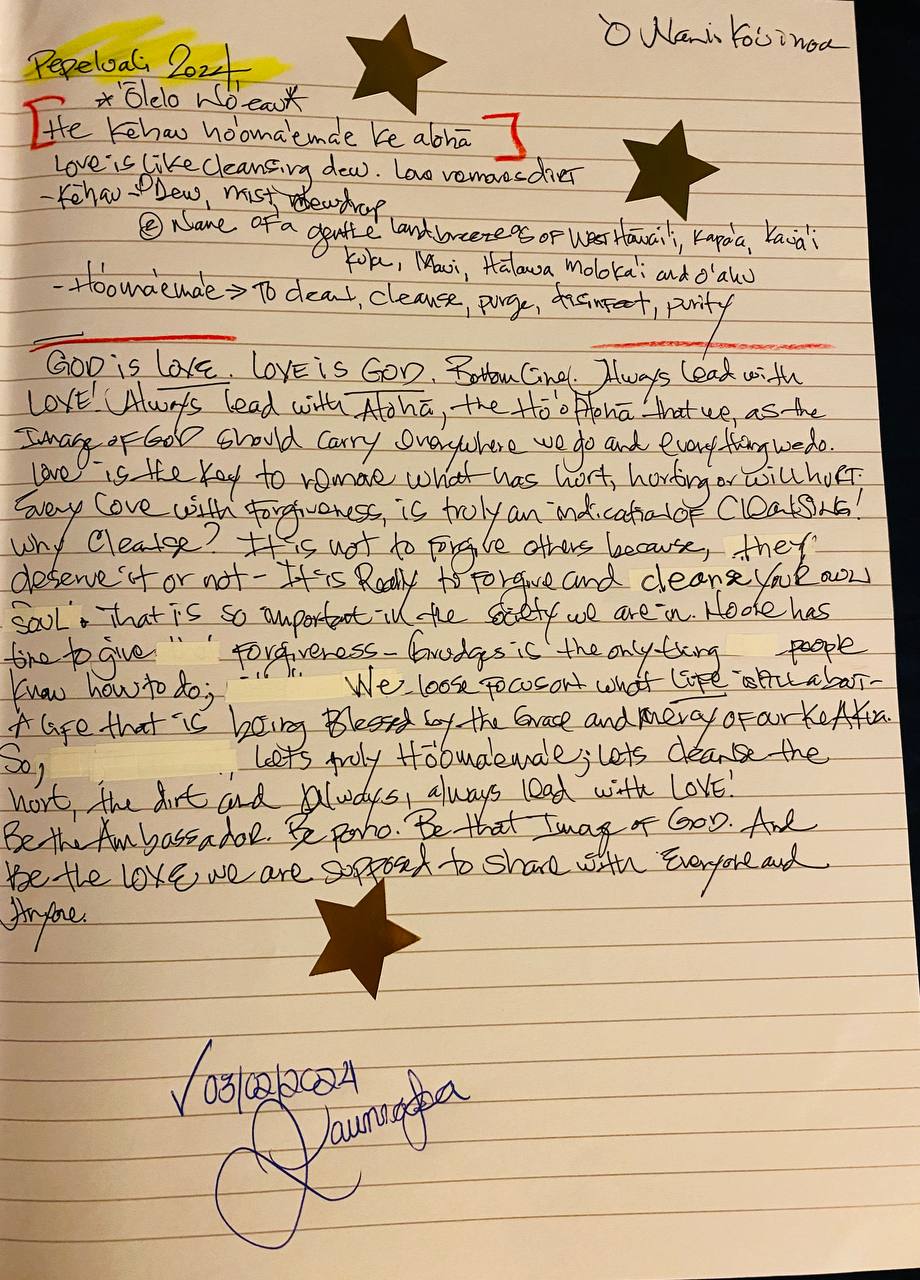 Pepeluali 2024
*'Ōlelo No'eau*
[He Kēhau ho'oma'ema'e Ke alohā]
Love is like cleansing dew. Love removes dirt
- Kēhau → Dew, mist, dewdrop
② Name of a gentle land breezes of West Hawai'i, Kapa'a, Kaua'i
Maui, Hālawa Moloka'i and O'ahu
- Ho'oma'ema'e → To clean, cleanse, purge, disinfect, purify
GOD is LOVE. LOVE is GOD. Bottom Line. Always lead with
LOVE! Always lead with Alohā, the Hō'o Alohā that we, as the
Image of GOD should carry everywhere we go and everything we do.
Love is the key to remove what has hurt, hurting or will hurt.
Every Love with Forgiveness, is truly an indication OF CleanSING!
Why Cleanse? It is not to Forgive others because, they
deserve it or not - It is Really to Forgive and cleanse your own
SOUL. That is so important in the society we are in. No one has
time to give forgiveness - Grudges is the only thing people
Know how to do; We loose focus on what Life is All about -
A Life that is being Blessed by the Grace and Mercy of our Ke Akua.
So, Lets truly Ho'oma'ema'e; lets cleanse the
hurt, the dirt and Always, always lead with LOVE!
Be the Ambassador. Be pono. Be that Image of GOD. And
Be the LOVE we are supposed to share with Everyone and
Anyone.
✓ 03/02/2024